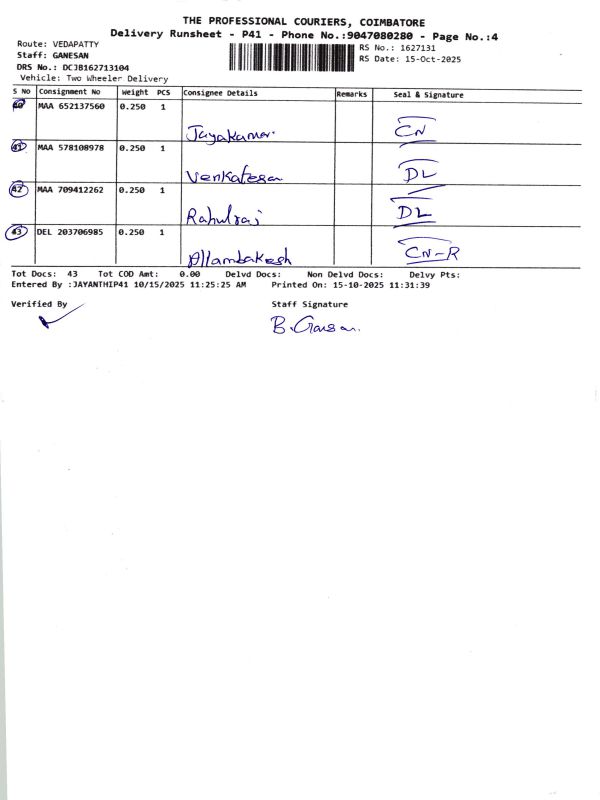 THE PROFESSIONAL COURIERS, COIMBATORE
Delivery Runsheet - P41 - Phone No.:9047080280 - Page No.:4
Route: VEDAPATTY
RS No.: 1627131
Staff: GANESAN
RS Date: 15-Oct-2025
DRS No.: DCJB162713104
Vehicle: Two Wheeler Delivery
S No Consignment No Weight PCS Consignee Details Remarks Seal & Signature
40 MAA 652137560 0.250 1
Jayakumar CN
41 MAA 578108978 0.250 1
Venkatesan DL
42 MAA 709412262 0.250 1
Rahulraj DL
43 DEL 203706985 0.250 1
Allambakesh CN-R
Tot Docs: 43 Tot COD Amt: 0.00 Delvd Docs: Non Delvd Docs: Delvy Pts:
Entered By :JAYANTHIP41 10/15/2025 11:25:25 AM Printed On: 15-10-2025 11:31:39
Verified By Staff Signature
B.